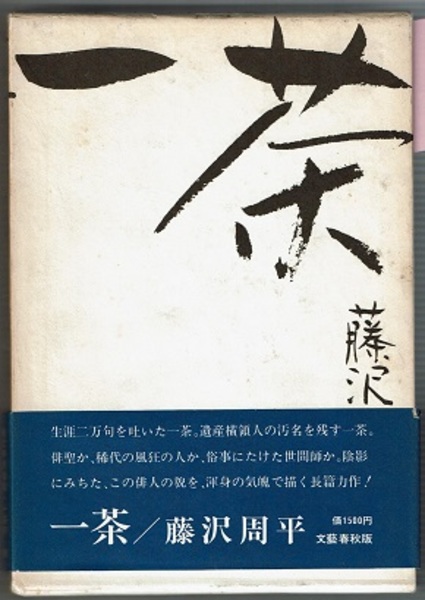 一茶
藤沢
生涯二万句を吐いた一茶。遺産横領人の汚名を残す一茶。
俳聖か、稀代の風狂の人か、俗事にたけた世間師か。陰影
にみちた、この俳人の貌を、渾身の気魄で描く長篇力作！
一茶／藤沢周平
価1500円
文藝春秋版